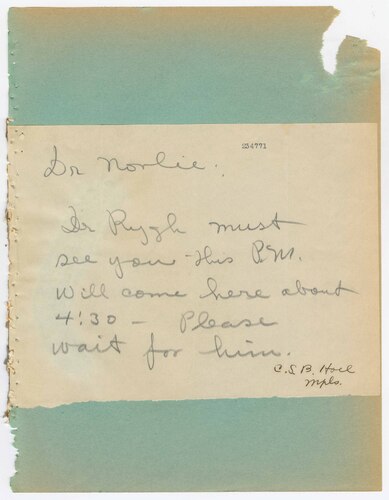 254771
Dr Norlie.
Dr Rygh must
see you this P.M.
will come here about
4:30 - Please
wait for him.
C.S.B. Hoel
Mpls.